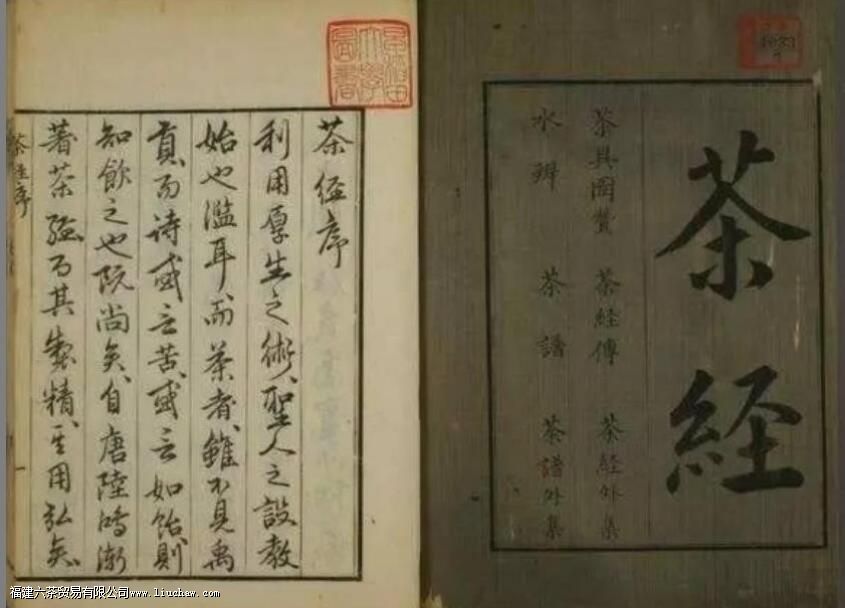 茶経
茶具圖贊 茶経傳 茶経外集
水辨 茶譜 茶譜外集
早稲田大學圖書
茶经序
利用厚生之術、聖人之設教
始也濫耳、而茶者、雖不見禹
貢、而诗或言苦、或言如飴、則
知飲之也既尚矣、自唐陸鴻漸
著茶経、而其製精、其用弘矣、
茶经序
福建六茶贸易有限公司www.liuchaw.com